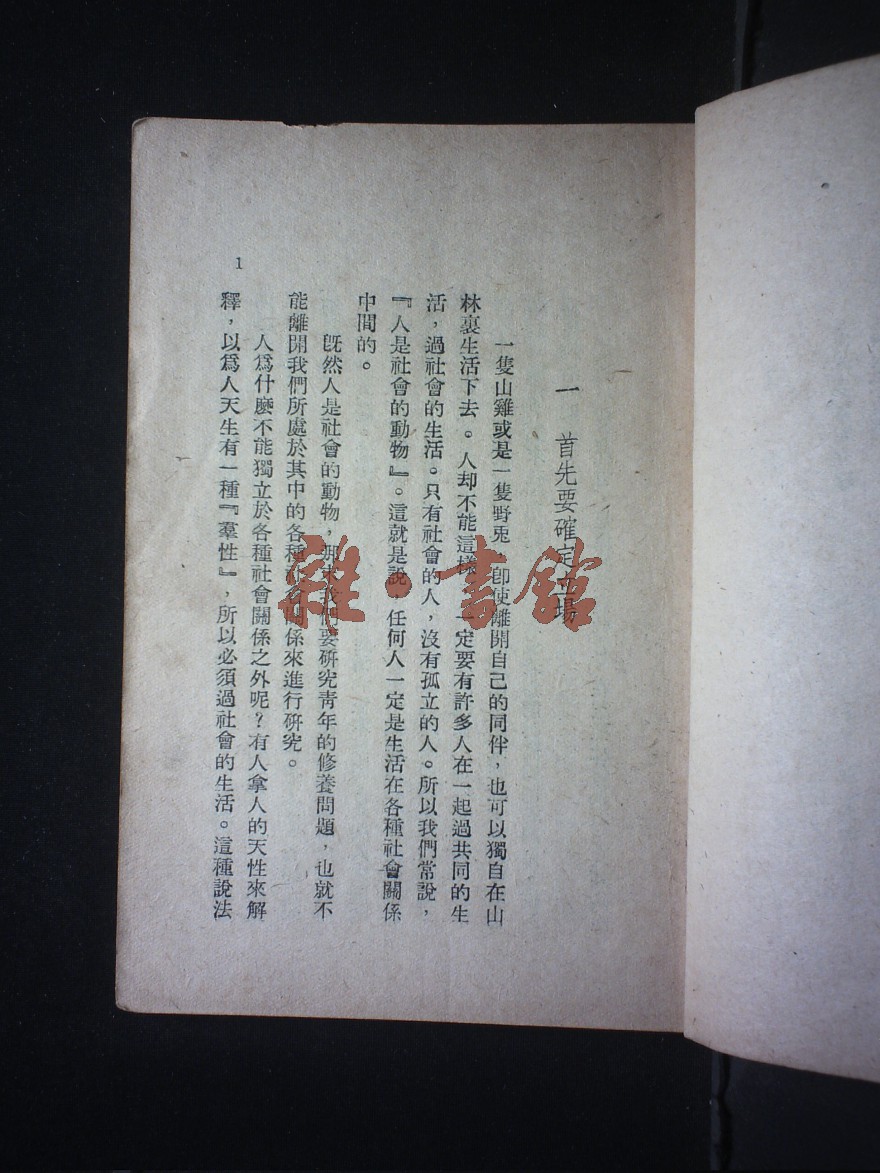 一 首先要確定立場
一隻山雞或是一隻野兎，卽使離開自己的同伴，也可以獨自在山
林裏生活下去。人却不能這樣，一定要有許多人在一起過共同的生
活，過社會的生活。只有社會的人，沒有孤立的人。所以我們常說，
『人是社會的動物』。這就是說，任何人一定是生活在各種社會關係
中間的。
旣然人是社會的動物，那末我們要硏究靑年的修養問題，也就不
能離開我們所處於其中的各種社會關係來進行硏究。
人爲什麼不能獨立於各種社會關係之外呢？有人拿人的天性來解
釋，以爲人天生有一種『羣性』，所以必須過社會的生活。這種說法
1
雜·書館